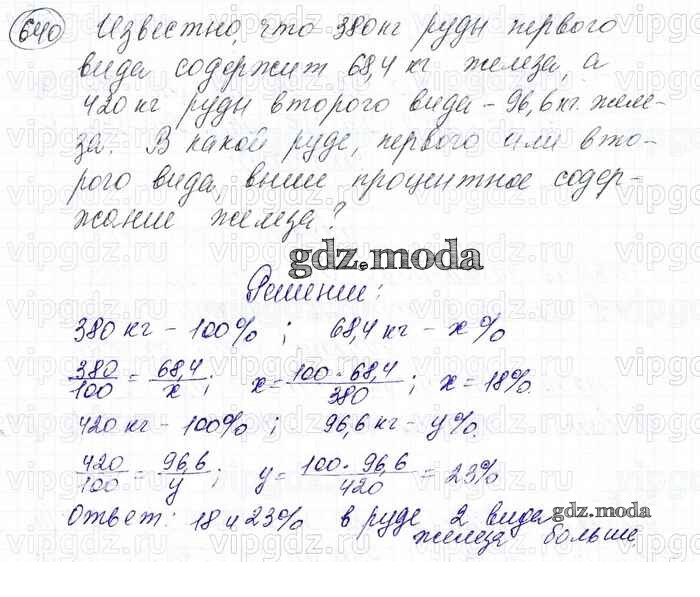 640 Известно, что 380 кг руды первого
вида содержит 68,4 кг железа, а
420 кг руды второго вида – 96,6 кг. желе-
за. В какой руде, первого или вто-
рого вида, выше процентное содер-
жание железа?
gdz.moda
Решение:
380 кг – 100% ; 68,4 кг – x %
380/100 = 68,4/x ; x = 100·68,4/380 ; x = 18%.
420 кг – 100% ; 96,6 кг – y %.
420/100 = 96,6/y ; y = 100·96,6/420 = 23%
Ответ: 18 и 23% в руде 2 вида
железа больше.
gdz.moda